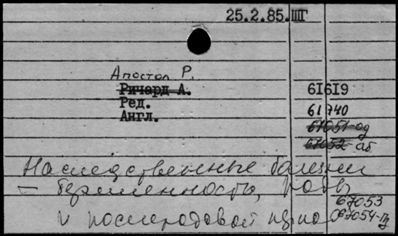 25.2.85.ШГ
Апостол Р.
Ричард А. 61619
Ред. 61740
Англ. 67051-ад
67052-аб
Наследственные болезни
- беременность, роды,
и послеродовой период
67053
67054-